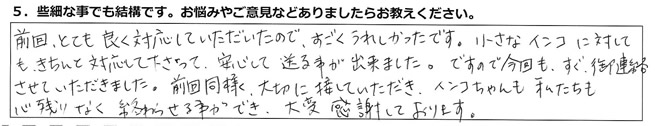 5．些細な事でも結構です。お悩みやご意見などありましたらお教えください。
前回、とても良く対応していただいたので、すごくうれしかったです。小さなインコに対して
も、きちんと対応して下さって、安心して送る事が出来ました。ですので今回も、すぐ、御連絡
させていただきました。前回同様、大切に接していただき、インコちゃんも私たちも
心残りなく終わらせる事ができ、大変感謝しております。